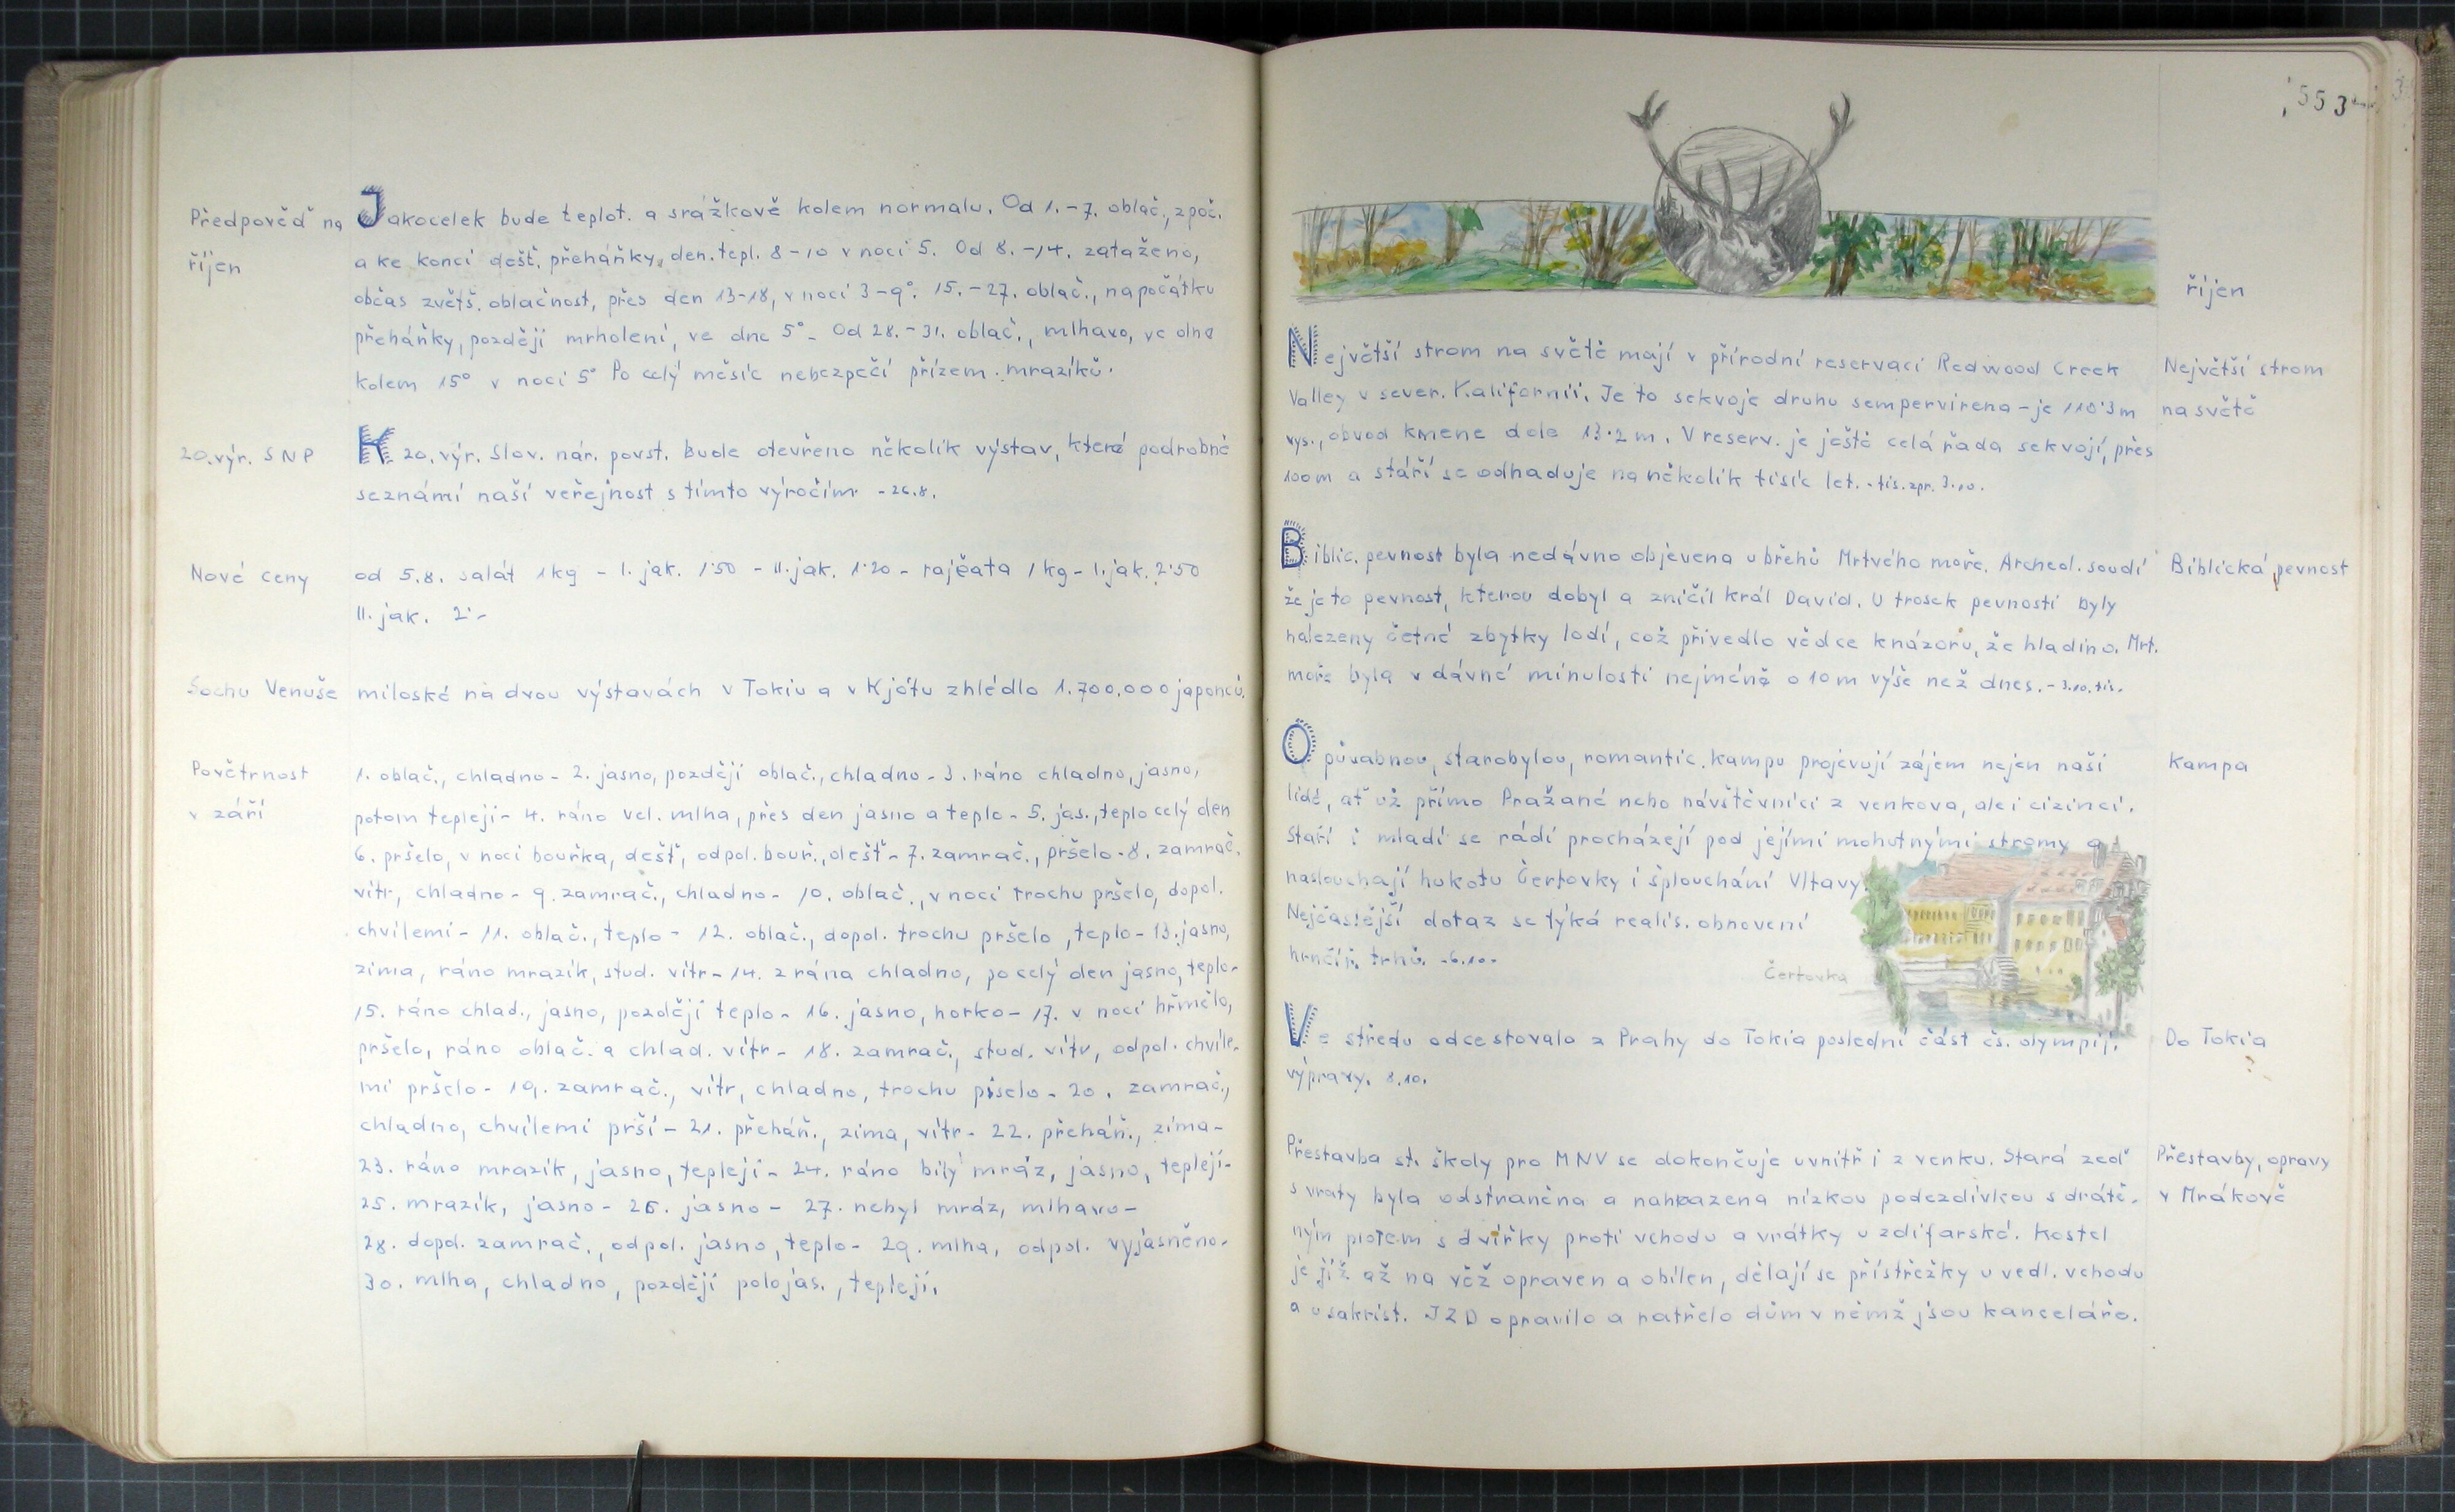 Předpověď na
říjen
Jakocelek bude teplot. a srážkově kolem normalu. Od 1.-7. oblač., zpoč.
a ke konci dešť. přeháňky, den. tepl. 8-10 v noci 5. Od 8.-14. zataženo,
občas zvětš. oblačnost, přes den 13-18, v noci 3-9°. 15.-27. oblač., napočátku
přeháňky, později mrholení, ve dne 5° - Od 28.-31. oblač., mlhavo, ve dne
kolem 15° v noci 5° Po celý měsíc nebezpečí přízem. mrazíků.
20. výr. SNP
K 20. výr. Slov. nár. povst. bude otevřeno několik výstav, které podrobně
seznámí naší veřejnost s tímto výročím - 26.8.
Nové ceny
od 5.8. salát 1kg - I. jak. 1'50 - II. jak. 1'20 - rajčata 1kg - I. jak. 2'50
II. jak. 2'-
Sochu Venuše
miloské na dvou výstavách v Tokiu a v Kjótu zhlédlo 1.700.000 japonců.
Povětrnost
v září
1. oblač., chladno - 2. jasno, později oblač., chladno - 3. ráno chladno, jasno,
potom tepleji - 4. ráno vel. mlha, přes den jasno a teplo - 5. jas., teplo celý den
6. pršelo, v noci bouřka, dešť, odpol. bouř., dešť - 7. zamrač., pršelo - 8. zamrač.
vítr, chladno - 9. zamrač., chladno - 10. oblač., v noci trochu pršelo, dopol.
chvílemi - 11. oblač., teplo - 12. oblač., dopol. trochu pršelo, teplo - 13. jasno,
zima, ráno mrazík, stud. vítr - 14. zrána chladno, po celý den jasno, teplo -
15. ráno chlad., jasno, později teplo - 16. jasno, horko - 17. v noci hřmělo,
pršelo, ráno oblač. a chlad. vítr - 18. zamrač., stud. vítr, odpol. chvíle-
mi pršelo - 19. zamrač., vítr, chladno, trochu pršelo - 20. zamrač.,
chladno, chvílemi prší - 21. přeháň., zima, vítr - 22. přeháň., zima -
23. ráno mrazík, jasno, tepleji - 24. ráno bílý mráz, jasno, tepleji -
25. mrazík, jasno - 26. jasno - 27. nebyl mráz, mlhavo -
28. dopol. zamrač., odpol. jasno, teplo - 29. mlha, odpol. vyjasněno -
30. mlha, chladno, později polojas., tepleji.
553
říjen
Největší strom na světě mají v přírodní reservaci Redwood Creek
Valley v sever. Kalifornii. Je to sekvoje druhu sempervirena - je 110'3 m
vys., obvod kmene dole 13'2 m. V reserv. je ještě celá řada sekvojí, přes
100m a stáří se odhaduje na několik tisíc let. - tis. zpr. 3.10.
Největší strom
na světě
Biblic. pevnost byla nedávno objevena u břehů Mrtvého moře. Archeol. soudí
že je to pevnost, kterou dobyl a zničil král David. U trosek pevnosti byly
nalezeny četné zbytky lodí, což přivedlo vědce k názoru, že hladina Mrt.
moře byla v dávné minulosti nejméně o 10m výše než dnes. - 3.10. tis.
Biblická pevnost
O půvabnou, starobylou, romantic. Kampu projevují zájem nejen naší
lidé, ať už přímo Pražané nebo návštěvníci z venkova, ale i cizinci.
Staří i mladí se rádi procházejí pod jejími mohutnými stromy a
naslouchají hukotu Čertovky i šplouchání Vltavy.
Nejčastější dotaz se týká realis. obnovení
hrnčíř. trhů. - 6.10 -
Kampa
Čertovka
Ve středu odcestovala z Prahy do Tokia poslední část čs. olympij.
výpravy. 8.10.
Do Tokia
Přestavba st. školy pro MNV se dokončuje uvnitř i z venku. Stará zeď
s vraty byla odstraněna a nahrazena nízkou podezdívkou s drátě-
ným plotem s dvířky proti vchodu a vrátky u zdi farské. Kostel
je již až na věž opraven a obílen, dělají se přístřešky u vedl. vchodu
a u sakrist. JZD opravilo a natřelo dům v němž jsou kanceláře.
Přestavby, opravy
v Mrákově